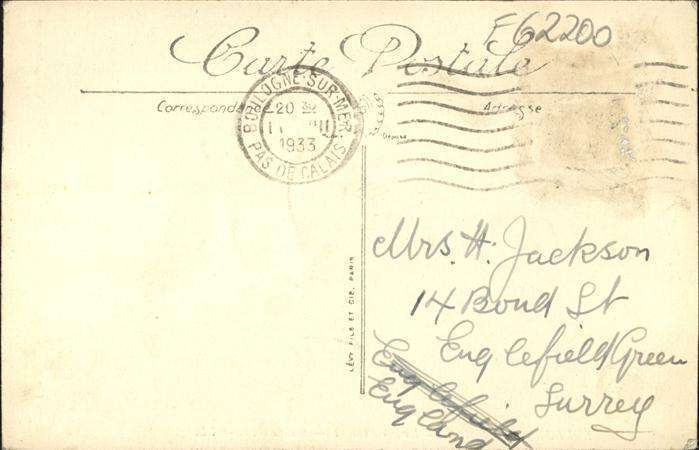 F62200
Carte Postale
Correspondance
Adresse
BOULOGNE-SUR-MER
20 30
11
1933
PAS DE CALAIS
LÉVY FILS ET CIE, PARIS
Mrs. H. Jackson
14 Bond St
Englefield Green
Surrey
Englefield
England